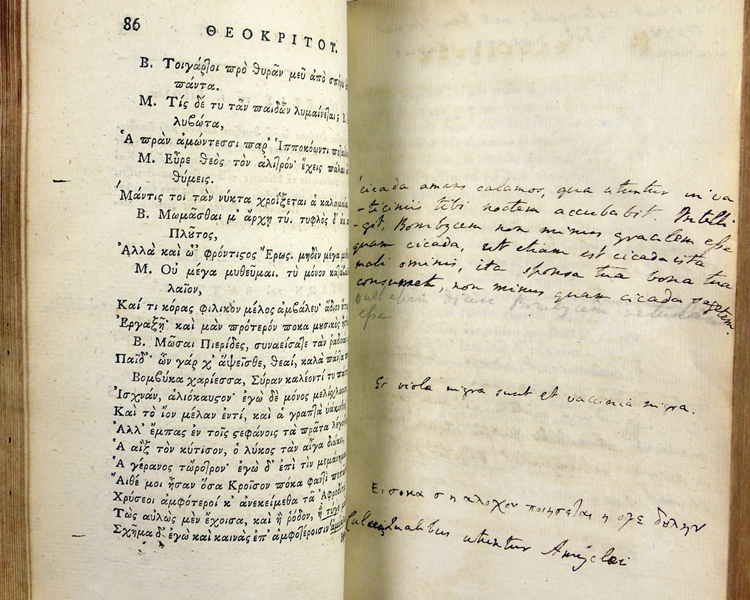 86
ΘΕΟΚΡΙΤΟΥ.
Β. Τοιγάρτοι πρὸ θυρᾶν μευ ἀπὸ
πάντα.
Μ. Τίς δέ τυ τᾶν παιδῶν λυμαίνεται;
λυϐώτα,
Ἁ πρὰν ἀμώντεσσι παρ' Ἱπποκόωντι
Μ. Εὗρε θεὸς τὸν ἀλιτρόν· ἔχεις πάλαι
θύμεις.
Μάντις τοι τὰν νύκτα χροϊξεῖται ἁ
Β. Μωμᾶσθαί μ' ἄρχῃ τύ. τυφλὸς δ'
Πλοῦτος,
Ἀλλὰ καὶ ὡ' φρόντιστος Ἔρως. μηδὲν μέγα
Μ. Οὐ μέγα μυθεῦμαι. τὺ μόνον
λαῖον,
Καί τι κόρας φιλικὸν μέλος ἀμβάλευ·
Ἐργαξῇ· καὶ μὰν πρότερόν ποκα μυσικὸς
Β. Μῶσαι Πιερίδες, συναείσατε τὰν
Παῖδ'· ὧν γάρ χ' ἅψεισθε, θεαί, καλὰ
Βομβύκα χαρίεσσα, Σύραν καλέοντί τυ
Ἰσχνάν, ἁλιόκαυστον· ἐγὼ δὲ μόνος
Καὶ τὸ ἴον μέλαν ἐντί, καὶ ἁ γραπτὰ
Ἀλλ' ἔμπας ἐν τοῖς στεφάνοις τὰ πρᾶτα
Ἁ αἲξ τὸν κύτισον, ὁ λύκος τὰν αἶγα
Ἁ γέρανος τὤροτρον· ἐγὼ δ' ἐπὶ τὶν
Αἴθε μοι ἦσαν ὅσα Κροῖσον ποκα φαντὶ
Χρύσεοι ἀμφότεροί κ' ἀνεκείμεθα τᾷ
Τὼς αὐλὼς μὲν ἔχοισα, καὶ ἢ ῥόδον, ἢ
Σχῆμα δ' ἐγὼ καὶ καινὰς ἐπ' ἀμφοτέροισιν
cicada amans calamos, qua utuntur in va
-ticiniis tibi noctem accubabit. Intelli
-git, Bombycem non minus gracilem esse
quam cicada, ut etiam est cicada ista
mali ominis, ita sponsa tua bona tua
consumet, non minus quam cicada segetem.
esse
Et viola nigra sunt et vaccinia nigra.
ποιησεται η
utuntur Amyclaei